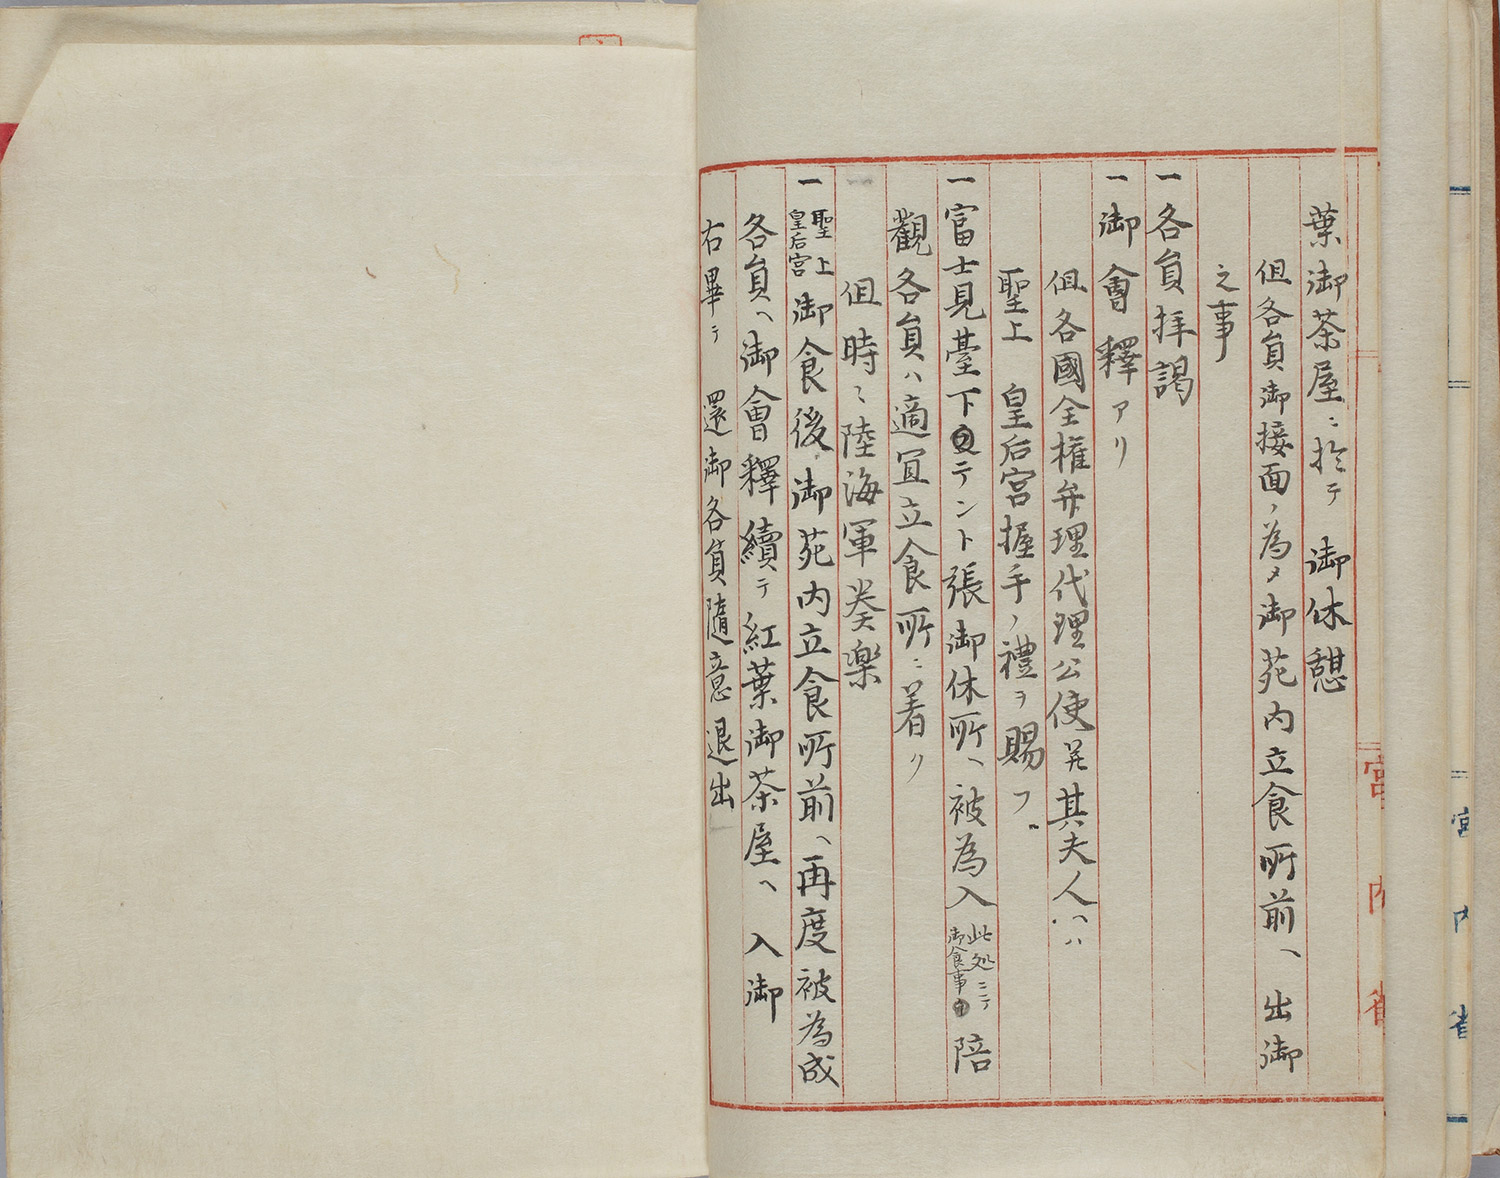 葉御茶屋ニ於テ　御休憩
但各員御接面ノ為メ御苑内立食所前ヘ　出御
之事
一各員拝謁
一御會釋アリ
但各國全権弁理代理公使并其夫人ヘハ
聖上　皇后宮握手ノ禮ヲ賜フ
一富士見臺下テント張御休所ヘ被為入此処ニテ御食事陪
觀各員ハ適宜立食所ニ着ク
但時々陸海軍奏楽
一聖上皇后宮御食後御苑内立食所前ヘ再度被為成
各員ヘ御會釋續テ紅葉御茶屋ヘ　入御
右畢テ　還御各員隨意退出
宮内省
宮内省